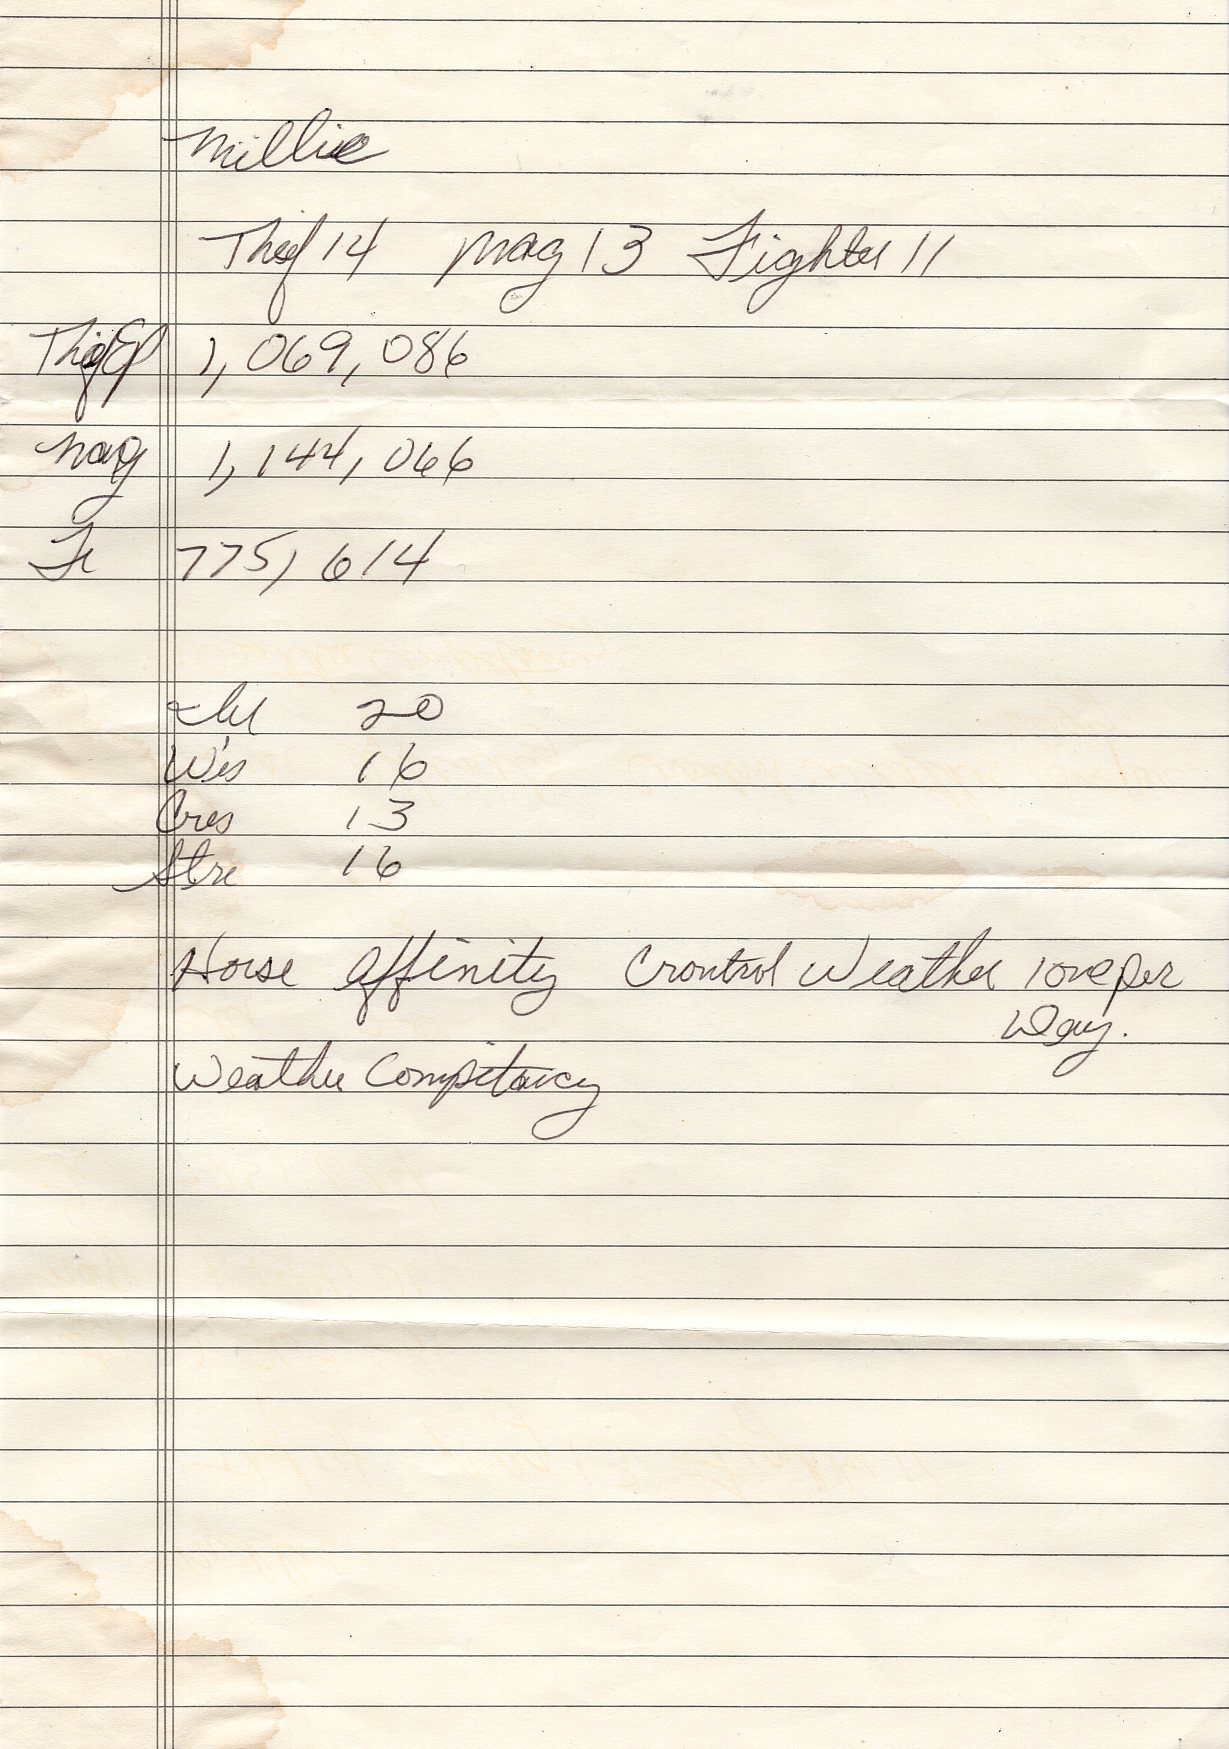 Millie
Thief 14 Mag 13 Fighter 11
Thief Ep 1,069,086
Mag 1,144,066
Fi 775,614
20
Wis 16
Cres 13
Stre 16
Horse affinity Crontrol Weather 1 one per
Day.
Weather Compitancy